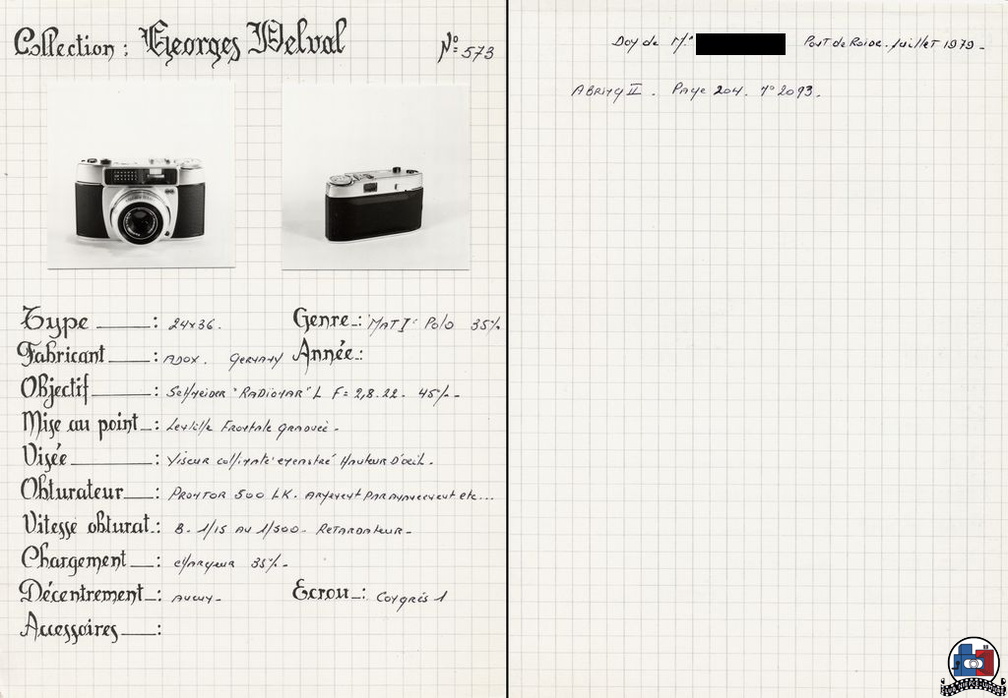 Collection : Georges Delval N° 573
Type : 24x36. Genre : "MAT I" Polo 35%
Fabricant : ADOX. GERMANY Année :
Objectif : Schneider "RADIONAR" L F= 2,8.22. 45%-
Mise au point : Lentille Frontale graduée -
Visée : Viseur collimaté encastré Hauteur D'œil.
Obturateur : PRONTOR 500 LK. Armement
Vitesse obturat : B. 1/15 AU 1/500 - Retardateur -
Chargement : chargeur 35%-
Décentrement : AUCUN - Ecrou : Congrès 1
Accessoires :
Don de Mr Pont de Roide. Juillet 1979 -
ABRING II. Page 204. n° 2093.